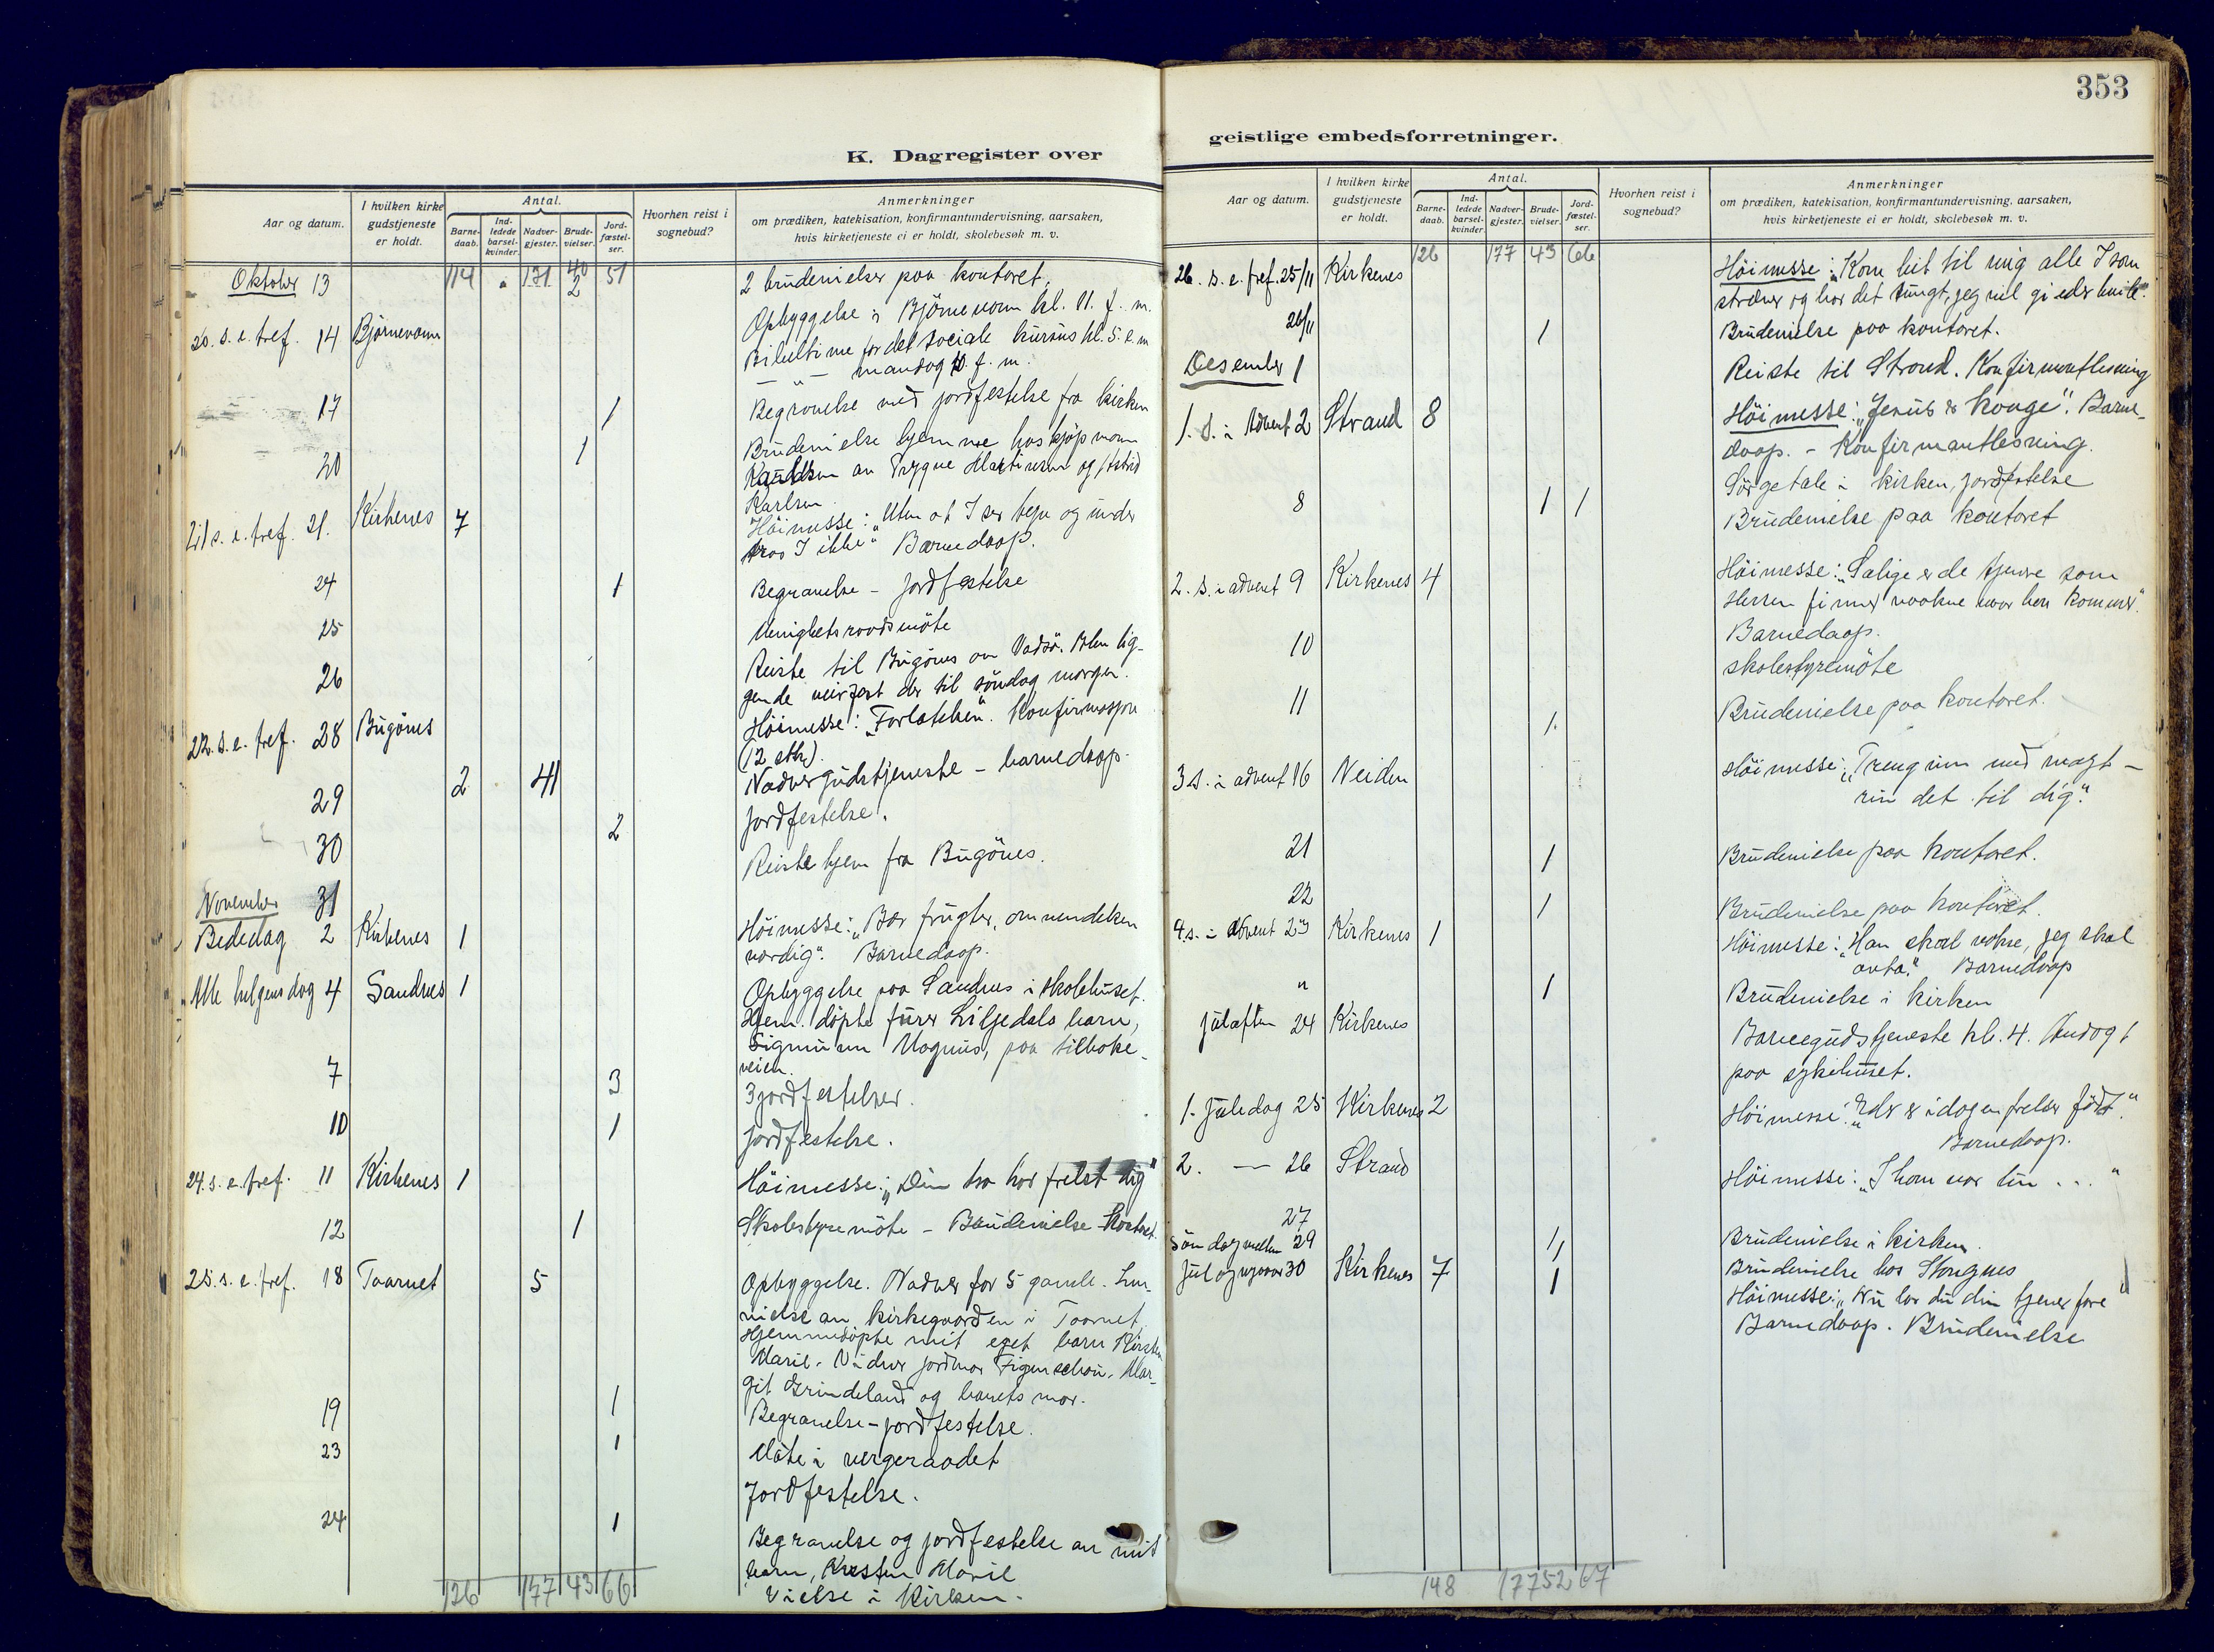 K. Dagregister over
Aar og datum.
I hvilken kirke gudstjeneste er holdt.
Antal.
Barne-daab.
Ind-ledede barsel-kvinder.
Nadver-gjester.
Brude-vielser.
Jord-fæstel-ser.
Hvorhen reist i sognebud?
Anmerkninger
om prædiken, katekisation, konfirmantundervisning, aarsaken,
hvis kirketjeneste ei er holdt, skolebesøk m. v.
114 131 40 51
Oktober 13 2 2 brudevielser paa kontoret.
20. s. e. tref. 14 Bjørnevann Opbyggelse i Bjørnevann kl. 11 f. m.
Bibeltime for det sociale kursus kl. 5 e. m
— " — mandag 10 f. m.
17 1 Begravelse med jordfestelse fra kirken
20 1 Brudevielse hjemme hos kjøpmann
av Trygve Martinsen og
Karlsen
21 s. e. tref. 21. Kirkenes 7 Høimesse: „Uten at I ser tegn og under
tror I ikke" Barnedaap.
24 1 Begravelse – jordfestelse
25 Menighetsraadsmöte
26 Reiste til Bugönes om Vadsö. Blev lig-
gende veirfast der til söndag morgen.
22. s. e. tref. 28 Bugönes Höimesse: „Forlatelsen". Konfirmasjon
(12 stk).
2 41 Nadvergudstjeneste – barnedaap.
29 2 Jordfestelse.
30 Reiste hjem fra Bugönes.
November 31
Bededag 2 Kirkenes 1 Höimesse: „Bær frugter, omvendelsen
verdig". Barnedaap.
Alle helgensdag 4 Sandnes 1 Opbyggelse paa Sandnes i skolehuset.
Hjem. döpte fürer Liljedals barn,
Sigmunn Magnus, paa tilbake-
veien.
7 3 3 jordfestelser.
10 1 Jordfestelse.
24. s. e. tref. 11 Kirkenes 1 Höimesse: „Din tro har frelst dig"
12 1 Skolestyremöte – Brudevielse – Kontoret.
25. s. e. tref. 18 Taarnet 5 Opbyggelse. Nadver for 5 gamle. Inn-
vielse av kirkegaarden i Taarnet.
Hjemmedöpte mit eget barn Kirsten
Marie. Vidner jordmor Figenschou, Mar-
git Grindeland og barnets mor.
19 1 Begravelse – jordfestelse.
23 1 Möte i vergeraadet
Jordfestelse.
24 1 Begravelse og jordfestelse av mit
barn, Kirsten Marie
Vielse i Kirken.
126 177 43 66
353
geistlige embedsforretninger.
Aar og datum.
I hvilken kirke gudstjeneste er holdt.
Antal.
Barne-daab.
Ind-ledede barsel-kvinder.
Nadver-gjester.
Brude-vielser.
Jord-fæstel-ser.
Hvorhen reist i sognebud?
Anmerkninger
om prædiken, katekisation, konfirmantundervisning, aarsaken,
hvis kirketjeneste ei er holdt, skolebesøk m. v.
126 177 43 66
26. s. e. tref. 25/11 Kirkenes Höimesse: „Kom hit til mig alle I som
strever og har det tungt, jeg vil gi eder hvile".
26/11 1 Brudevielse paa kontoret.
Desember 1 Reiste til Strand. Konfirmantlesning
1. s. i Advent 2 Strand 8 Höimesse: „Jesus er konge". Barne-
daap. – Konfirmantlesning.
8 1 1 Sörgetale i kirken, jordfestelse
Brudevielse paa kontoret
2. s. i advent 9 Kirkenes 4 Höimesse: „Salige er de tjenere som
Herren finner vaakne naar han kommer".
Barnedaap.
10 skolestyremöte
11 1. Brudevielse paa kontoret.
3 s. i advent 16 Neiden Höimesse: „Treng inn med magt –
riv det til dig".
21 1 Brudevielse paa kontoret.
22 1 Brudevielse paa kontoret.
4. s. i Advent 23 Kirkenes 1 Höimesse: „Han skal vokse, jeg skal
avta." Barnedaap
" 1 Brudevielse i kirken
Julaften 24 Kirkenes Barnegudstjeneste kl. 4. Andagt
paa sykehuset.
1. Juledag 25 Kirkenes 2 Höimesse: „Eder er idag en frelser födt".
Barnedaap.
2. — 26 Strand Höimesse: „I ham var liv . . . "
27 1 Brudevielse i kirken.
29 1 Brudevielse hos
Söndag mellem jul og nyaar 30 Kirkenes 7 1 Höimesse: „Nu lar du din tjener fare"
Barnedaap. Brudevielse
148 177 52 67